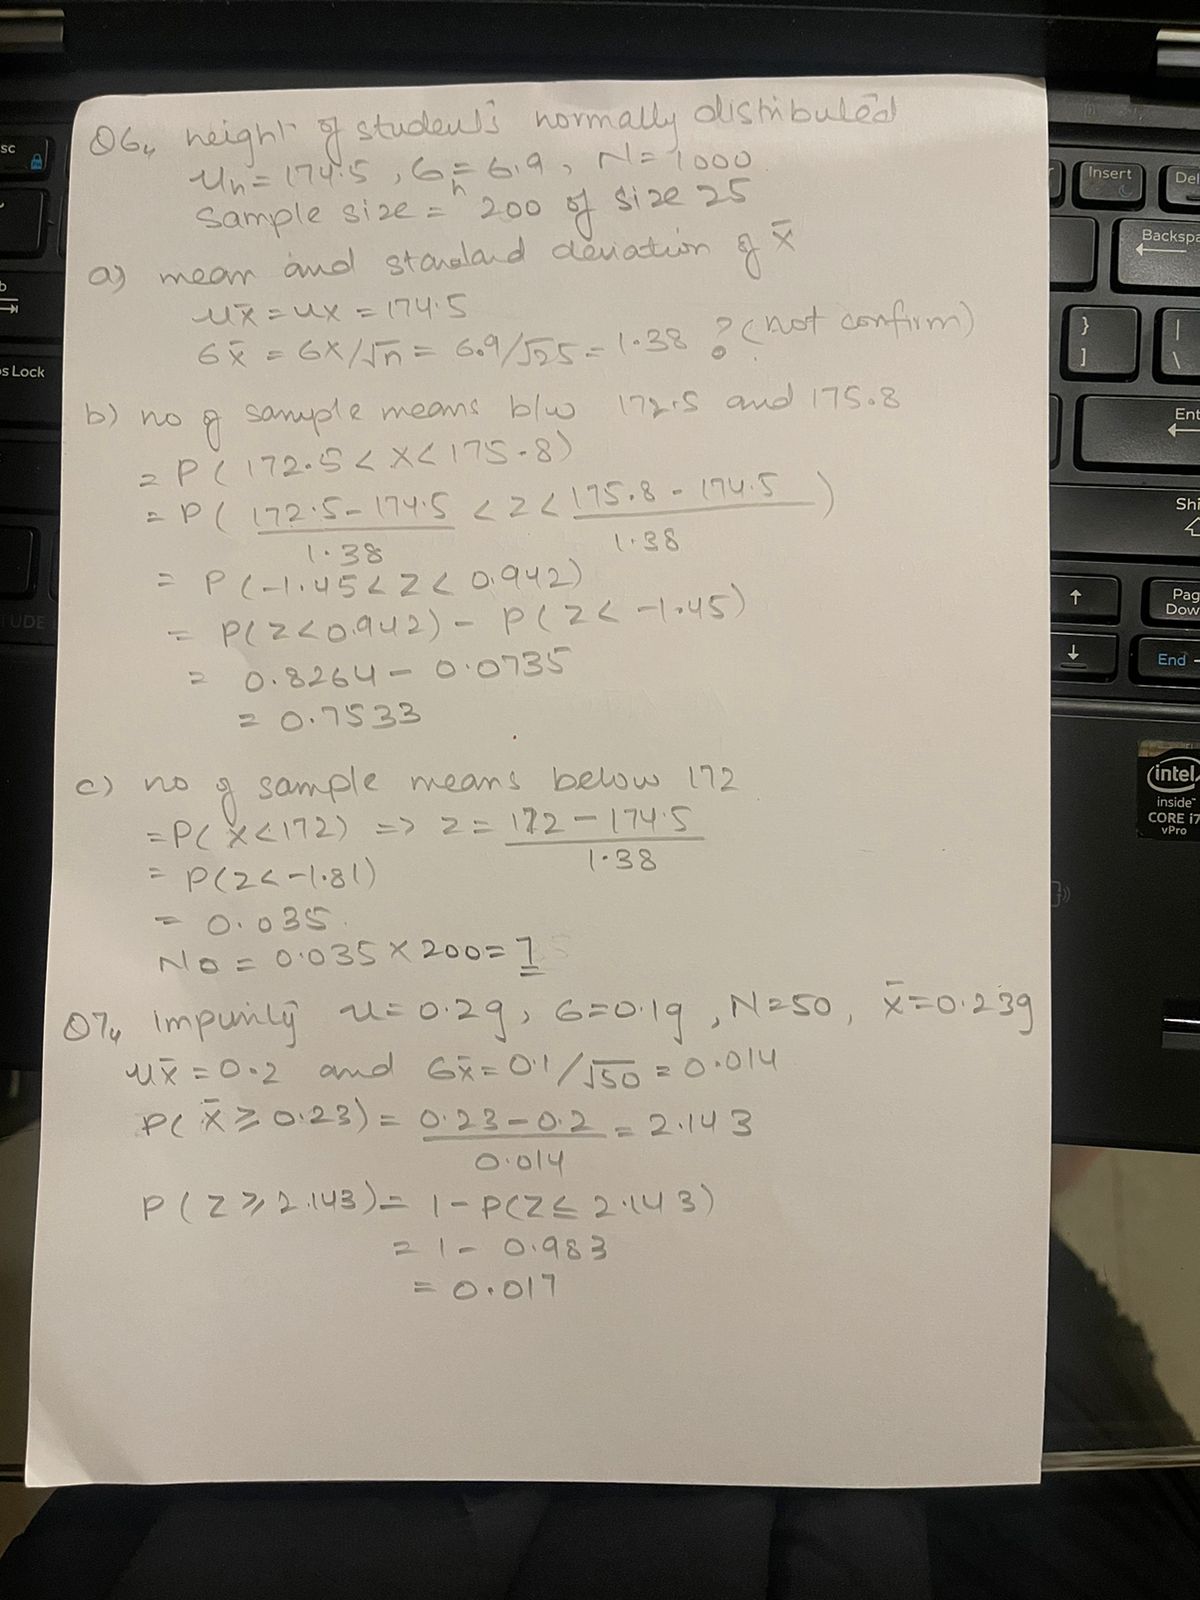 Q6, height of students normally distributed
μh = 174.5, σh = 6.9, N = 1000
Sample size = 200 of size 25
a) mean and standard deviation of x̄
μx̄ = μx = 174.5
σx̄ = σx/√n = 6.9/√25 = 1.38 ? (not confirm)
b) no of sample means b/w 172.5 and 175.8
= P(172.5 < X < 175.8)
= P( 172.5 - 174.5 / 1.38 < Z < 175.8 - 174.5 / 1.38 )
= P(-1.45 < Z < 0.942)
= P(Z < 0.942) - P(Z < -1.45)
= 0.8264 - 0.0735
= 0.7533
c) no of sample means below 172
= P(X < 172) => Z = 172 - 174.5 / 1.38
= P(Z < -1.81)
= 0.035
No = 0.035 × 200 = 7
Q7, impurity μ = 0.2g, σ = 0.1g, N = 50, x̄ = 0.23g
μx̄ = 0.2 and σx̄ = 0.1/√50 = 0.014
P(x̄ ≥ 0.23) = 0.23 - 0.2 / 0.014 = 2.143
P(Z ≥ 2.143) = 1 - P(Z ≤ 2.143)
= 1 - 0.983
= 0.017
sc
Lock
Insert
Del
Backspa
}
]
|
\
Ent
Shi
Pag
Dow
End
intel
inside
CORE i7
vPro